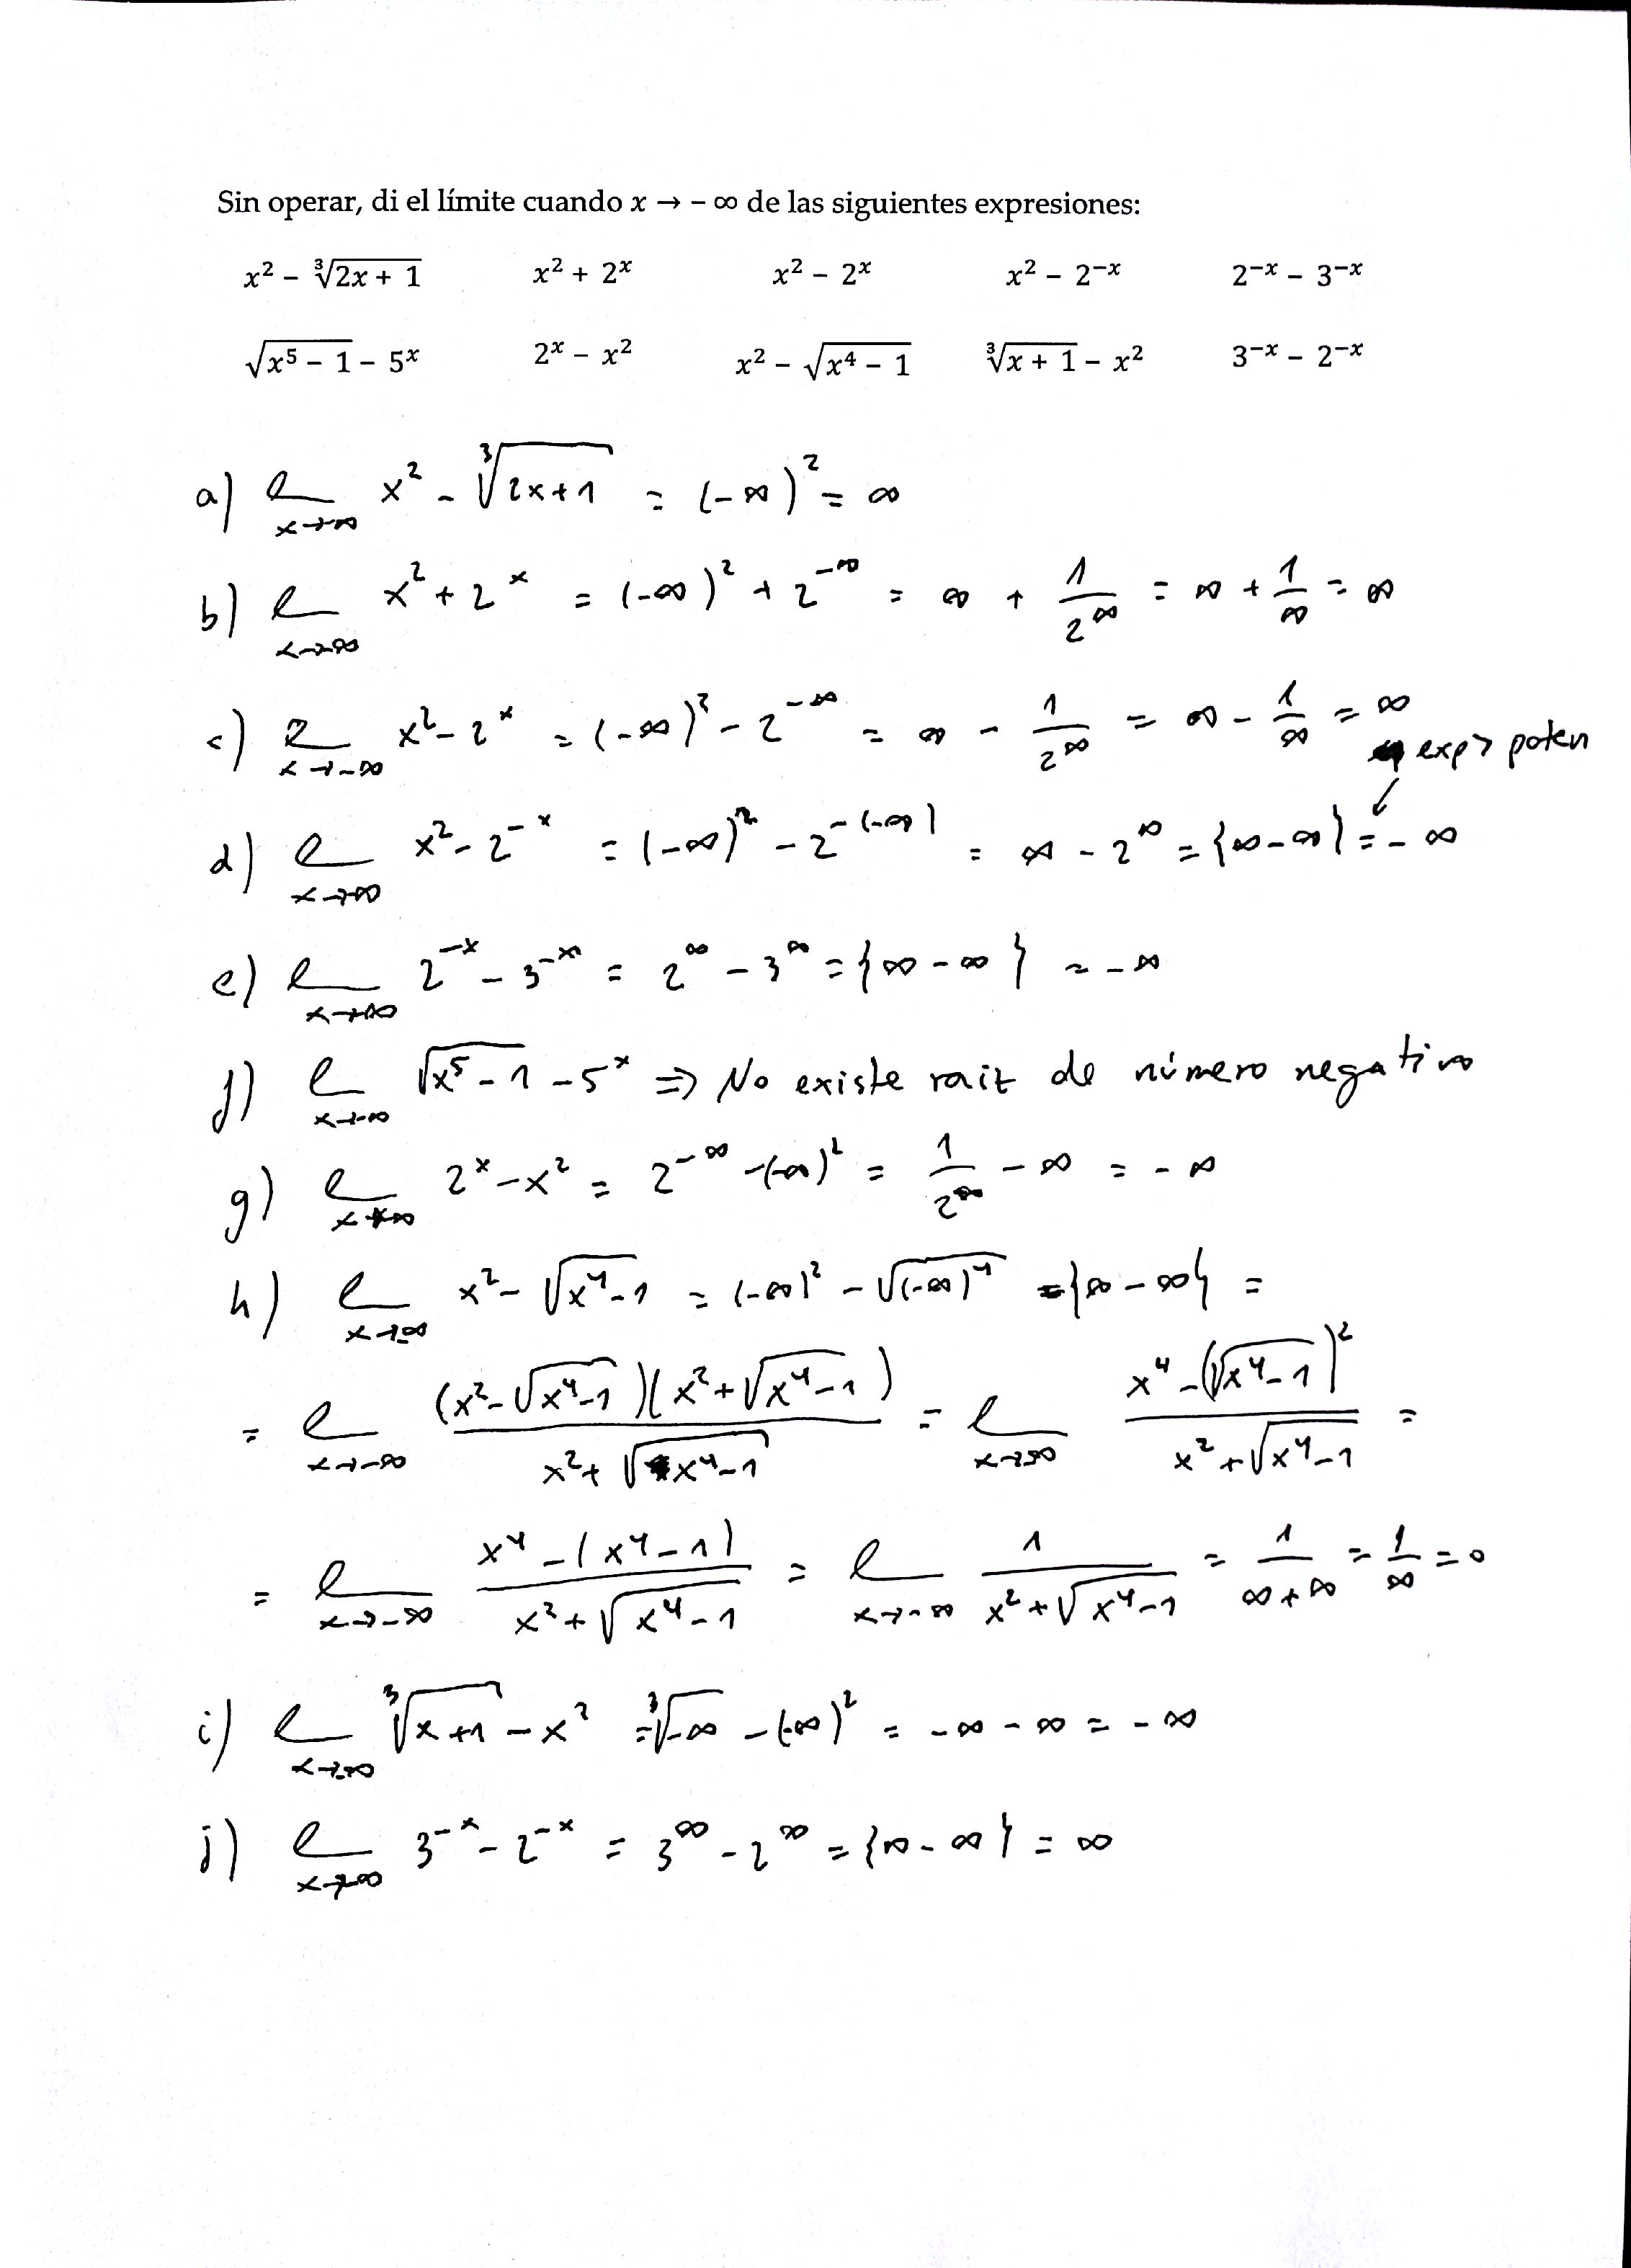 Sin operar, di el límite cuando x → − ∞ de las siguientes expresiones:
x² − ∛(2x + 1)    x² + 2ˣ    x² − 2ˣ    x² − 2⁻ˣ    2⁻ˣ − 3⁻ˣ
√(x⁵ − 1) − 5ˣ    2ˣ − x²    x² − √(x⁴ − 1)    ∛(x + 1) − x²    3⁻ˣ − 2⁻ˣ
a) l x→-∞ x² - ∛(2x+1) = (-∞)² = ∞
b) l x→-∞ x² + 2^x = (-∞)² + 2^-∞ = ∞ + 1/2^∞ = ∞ + 1/∞ = ∞
c) l x→-∞ x² - 2^x = (-∞)² - 2^-∞ = ∞ - 1/2^∞ = ∞ - 1/∞ = ∞
exp > poten
d) l x→-∞ x² - 2^-x = (-∞)² - 2^-(-∞) = ∞ - 2^∞ = {∞-∞} = -∞
e) l x→-∞ 2^-x - 3^-x = 2^∞ - 3^∞ = {∞ - ∞} = -∞
f) l x→-∞ √(x⁵ - 1) - 5^x ⇒ No existe raiz de número negativo
g) l x→-∞ 2^x - x² = 2^-∞ - (-∞)² = 1/2^∞ - ∞ = -∞
h) l x→-∞ x² - √(x⁴-1) = (-∞)² - √((-∞)⁴) = {∞ - ∞} =
= l x→-∞ (x² - √(x⁴-1))(x² + √(x⁴-1)) / (x² + √(x⁴-1)) = l x→-∞ (x⁴ - (√(x⁴-1))²) / (x² + √(x⁴-1)) =
= l x→-∞ (x⁴ - (x⁴-1)) / (x² + √(x⁴-1)) = l x→-∞ 1 / (x² + √(x⁴-1)) = 1/(∞+∞) = 1/∞ = 0
i) l x→-∞ ∛(x+1) - x² = ∛(-∞) - (-∞)² = -∞ - ∞ = -∞
j) l x→-∞ 3^-x - 2^-x = 3^∞ - 2^∞ = {∞ - ∞} = ∞